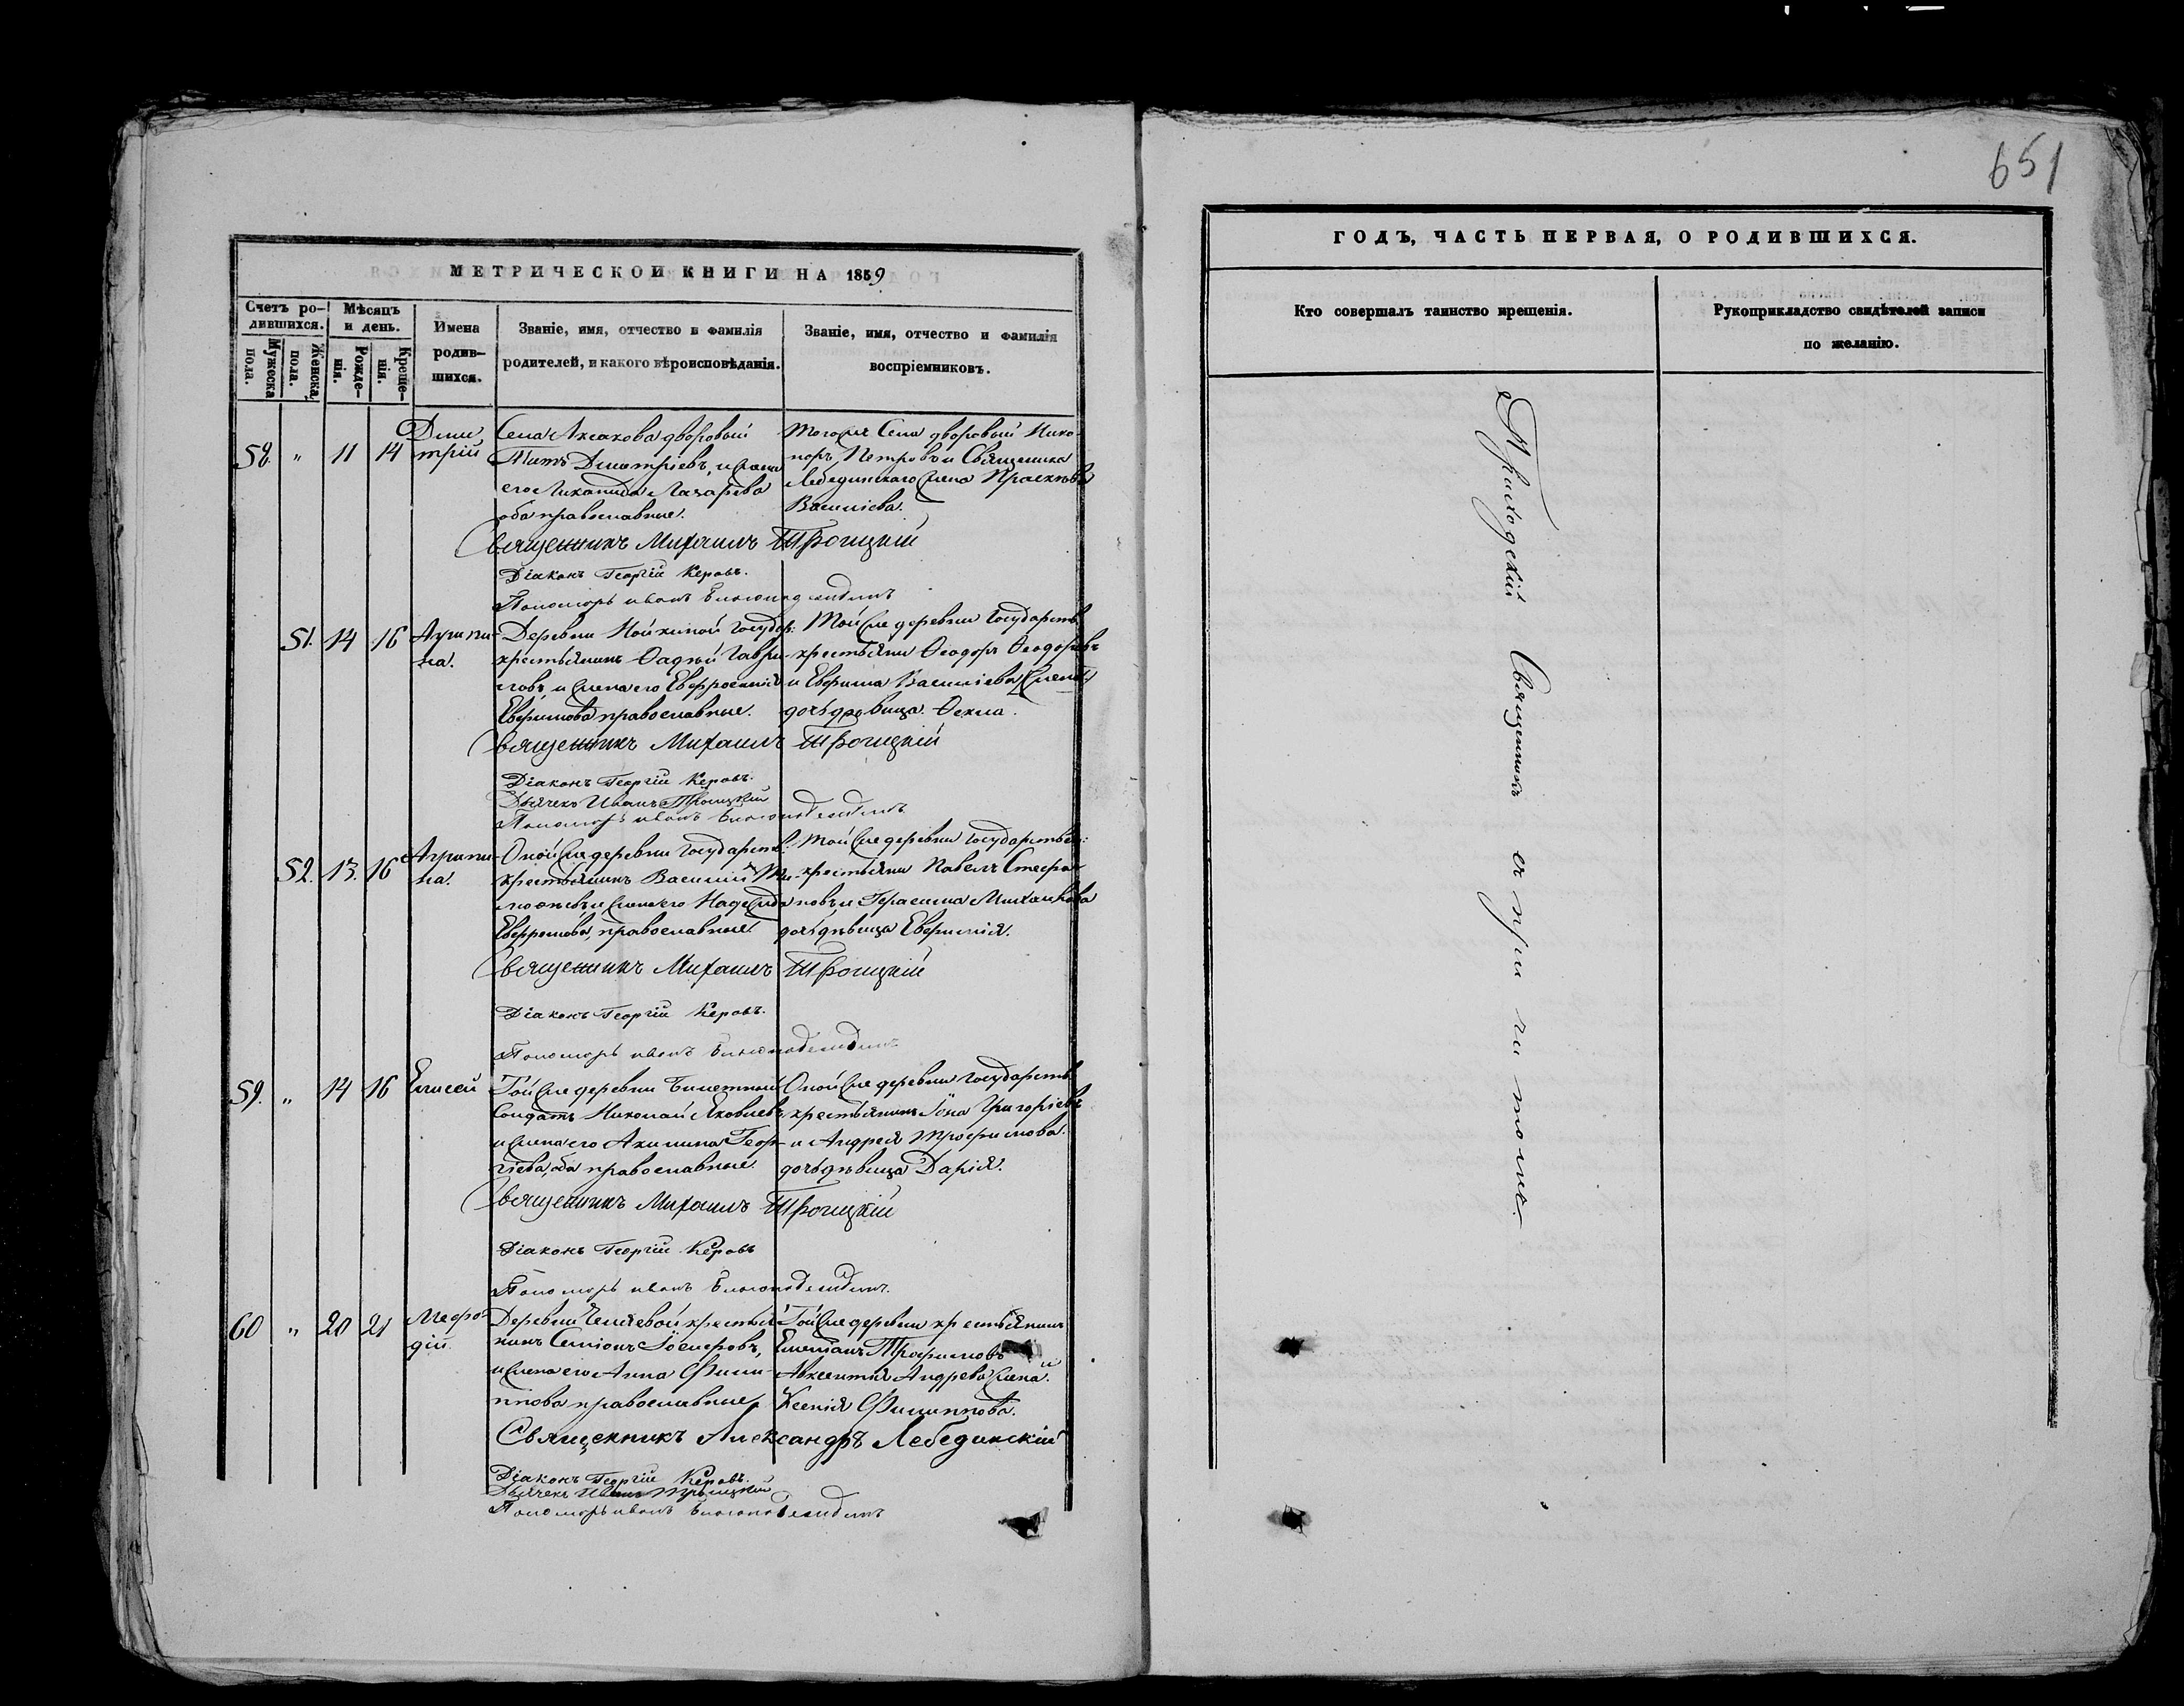 651
МЕТРИЧЕСКОЙ КНИГИ НА 1859
Счетъ ро-
дившихся.
Мужеска
пола.
Женска,
пола.
Мѣсяцъ
и день.
Рожде-
нія.
Креще-
нія.
Имена
родив-
шихся.
Званіе, имя, отчество и фамилія
родителей, и какого вѣроисповѣданія.
Званіе, имя, отчество и фамилія
воспріемниковъ.
58 " 11 14
Дими
трій
Села Аксакова дворовый
Титъ Димитріевъ, и жена
его Лазарева
оба православные.
Тогоже Села дворовый Ника
норъ Петровъ и Священника
Лебединскаго жена Прасковья
Василіева.
Священникъ Михаилъ Троицкій
Діаконъ Георгій Керовъ.
Пономорь иванъ
51. 14 16
Агрипи-
на.
Деревни Государ:
крестьянинъ Фадѣй Гаври-
ловъ, и жена его Евфросинія
Ефимова православные.
Той же деревни Государств:
крестьяни Ѳеодоръ Ѳеодоровъ
и Ефима Василіева
дочь дѣвица Ѳекла.
Священникъ Михаилъ Троицкій
Діаконъ Георгій Керовъ.
Дьячекъ Иванъ Троицкій
Пономорь иванъ
52. 13. 16
Агрипи-
на.
Оной же деревни Государств:
крестьянинъ Василій Ти-
моѳѣевъ и жена его Надежда
православные.
Той же деревни Государствен:
крестьяни Павелъ Стефа-
новъ и Герасима Михаилова
дочь дѣвица Евфимія.
Священникъ Михаилъ Троицкій
Діаконъ Георгій Керовъ.
Пономорь иванъ
59. " 14 16
Елисей
Той же деревни Билетный
Солдатъ Николай Яковлевъ,
и жена его Акилина Геор-
гіева, оба православные.
Оной же деревни Государств:
крестьянинъ Іона Григоріевъ
и Андрея Трофимова
дочь дѣвица Дарія.
Священникъ Михаилъ Троицкій
Діаконъ Георгій Керовъ
Пономорь иванъ
60 " 20 21
Меѳо-
дій.
Деревни крестья
нинъ Симіонъ
и жена его Анна Фили-
ппова православные,
Той же деревни крестьянинъ
Емеліанъ Трофимовъ и
Авксентія Андрева жена
Ксенія Филиппова.
Священникъ Александръ Лебединскій
Діаконъ Георгій Керовъ.
Дьячекъ Иванъ Троицкій
Пономорь иванъ
ГОДЪ, ЧАСТЬ ПЕРВАЯ, О РОДИВШИХСЯ.
Кто совершалъ таинство крещенія.
Рукоприкладство свидѣтелей записи
по желанію.
Приходскій Священникъ съ причитомъ.